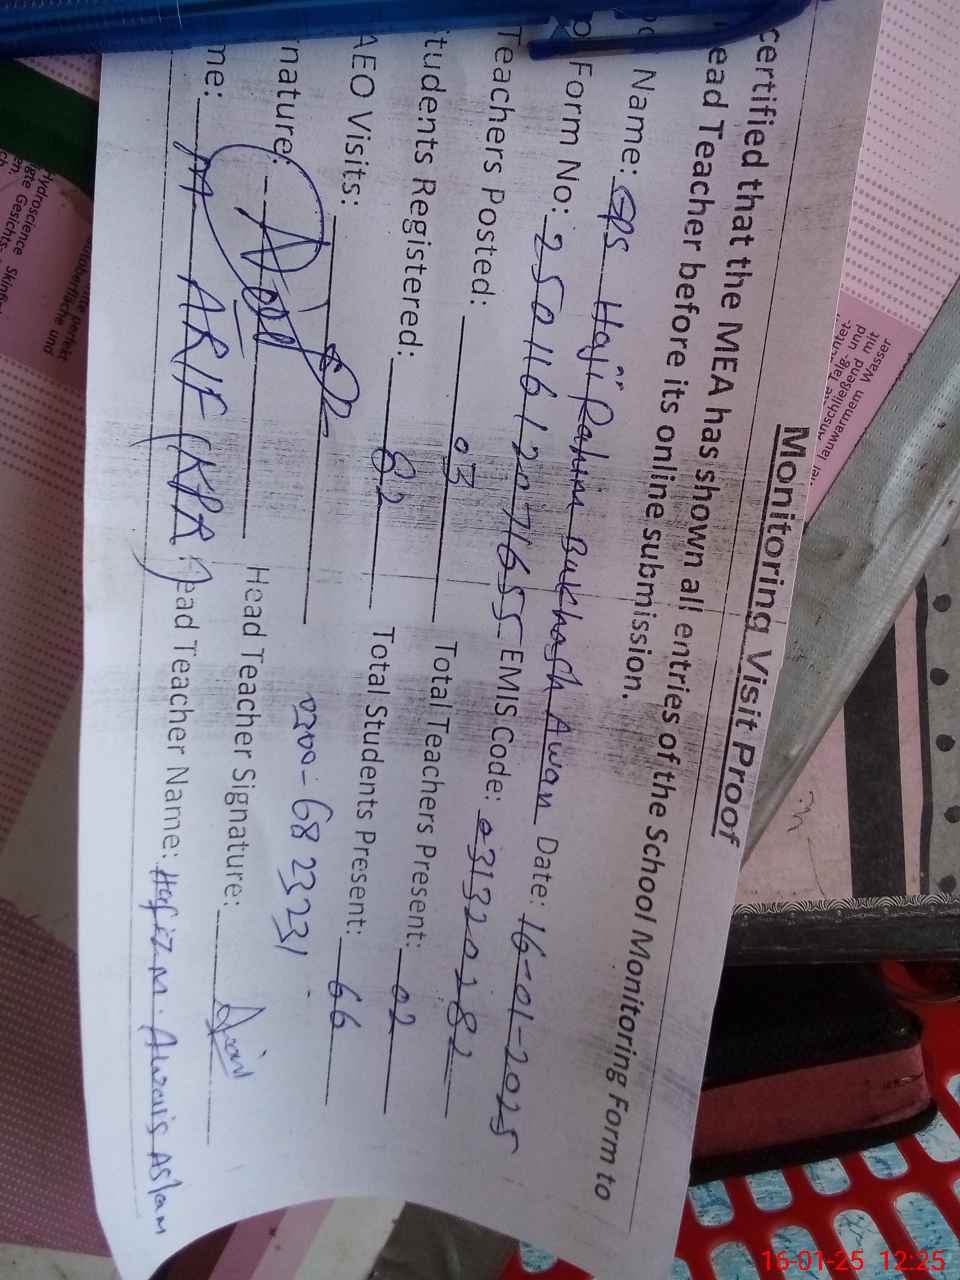 Monitoring Visit Proof
certified that the MEA has shown all entries of the School Monitoring Form to
ead Teacher before its online submission.
Name: GPS Haji Rahim Bakhash Awan Date: 16-01-2025
Form No: 25011612071655 EMIS Code: 031320282
Teachers Posted: 03 Total Teachers Present: 02
tudents Registered: 82 Total Students Present: 66
AEO Visits:
0300-6823231
nature: Head Teacher Signature:
me: M ARIF (KPR) ead Teacher Name: Hafiz M. Awais Aslam
Hydroscience Skinfi
Gesichts-
und
Talg- und
Anschließend mit
lauwarmem Wasser
16-01-25 12:25